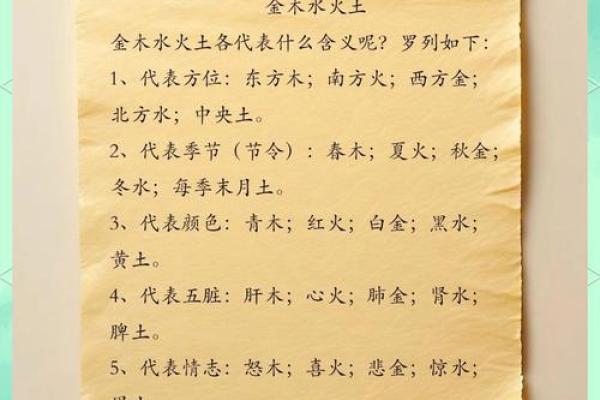 金木水火土
金木水火土各代表什么含义呢？罗列如下：
1、代表方位：东方木；南方火；西方金；
北方水；中央土。
2、代表季节（节令）：春木；夏火；秋金；
冬水；每季末月土。
3、代表颜色：青木；红火；白金；黑水；
黄土。
4、代表五脏：肝木；心火；肺金；肾水；
脾土。
5、代表情志：怒木；喜火；悲金；惊水；